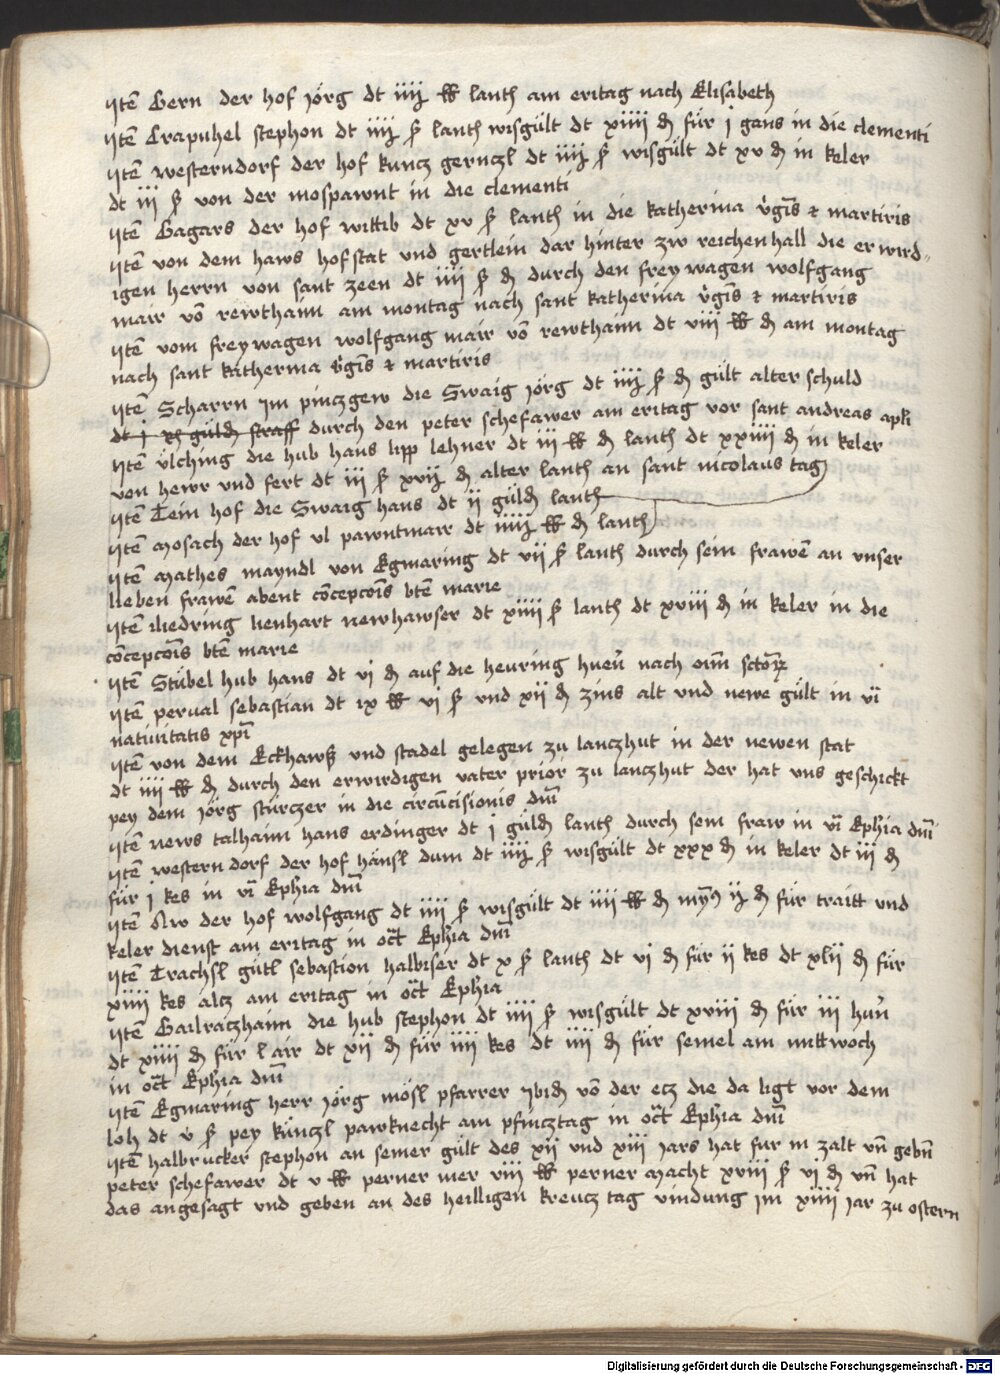 Jtē Gern der hof jörg dt iiij ℔ lanth am eritag nach Elisabeth
Jtē Crapuhel stephon dt iiij ß lanth wisgült dt xiiij ₰ für j gans in die clementi
Jtē westerndorf der hof kuncz gernczl dt iiij ß wisgült dt xv ₰ in keler
dt iij ß von der mospawnt in die clementi
Jtē Gagars der hof wittib dt xv ß lanth in die katherina v̄gīs et martiris
Jtē von dem haws hofstat vnd gertlein dar hinter zw reichenhall die erwird
igen herrn von sant zeen dt iiij ß ₰ durch den freywagen wolfgang
mair vō rewthaim am montag nach sant katherina v̄gīs et martiris
Jtē vom freywagen wolfgang mair vō rewthaim dt viij ℔ ₰ am montag
nach sant katherina v̄gīs et martiris
Jtē Scharrn jm pinczgew die Swaig jörg dt iiij ß ₰ gült alter schuld
durch den peter schefawer am eritag vor sant andreas apli
Jtē ülching die hub hans lipp lehner dt iij ℔ ₰ lanth dt xxiiij ₰ in keler
von hewr vnd fert dt iij ß xvij ₰ alter lanth an sant nicolaus tag
Jtē Tein hof die Swaig hans dt ij güld lanth
Jtē Mosach der hof vl pawntmair dt iiij ℔ ₰ lanth
Jtē Mathes mayndl von Egmaring dt vij ß lanth durch sein frawē an vnser
lieben frawē abent cōcepcōis btē marie
Jtē Niedring lienhart newhawser dt xiiij ß lanth dt xviij ₰ in keler in die
cōcepcōis btē marie
Jtē Stübel hub hans dt vj ₰ auf die hewring huen̄ nach oīm sctōꝝ
Jtē perual sebastian dt ix ℔ vj ß vnd xij ₰ zins alt vnd newe gült in vī
natiuitatis xpī
Jtē von dem Eckhawß vnd stadel gelegen zu lanczhut in der newen stat
dt iiij ℔ ₰ durch den erwirdigen vater prior zu lanczhut der hat vns geschickt
pey dem jörg stürczer in die circūcisionis dnī
Jtē news talhaim hans erdinger dt j güld lanth durch sein fraw in vī Ephīa dnī
Jtē westerndorf der hof hänsl dum dt iiij ß wisgült dt xxx ₰ in keler dt iij ₰
für j kes in vī Ephīa dnī
Jtē Aw der hof wolfgang dt iiij ß wisgült dt iiij ℔ ₰ myn⁹ ij ₰ für traitt vnd
keler dienst am eritag in oct̄ Ephīa dnī
Jtē Trachsl gütl sebastion halbiser dt x ß lanth dt vj ₰ für ij kes dt xlij ₰ für
xiiij kes alcz am eritag in oct̄ Ephīa
Jtē Gailraczhaim die hub stephon dt iiij ß wisgült dt xviij ₰ für iij hun̄
dt xiiij ₰ für l air dt xij ₰ für iiij kes dt iiij ₰ für semel am mittwoch
in oct̄ Ephīa dnī
Jtē Egmaring herr jörg mösl pfarrer jbid vō der ecz die da ligt vor dem
loh dt v ß pey künczl pawknecht am pfincztag in oct̄ Ephīa dnī
Jtē halbrucker stephon an seiner gült des xij vnd xiij jars hat fur in zalt vn̄ gebn̄
peter schefawer dt v ℔ perner mer viij ℔ perner macht xviij ß vj ₰ vn̄ hat
das angesagt vnd geben an des heilligen kreucz tag vindung jm xiiij jar zu ostern
Digitalisierung gefördert durch die Deutsche Forschungsgemeinschaft - DFG